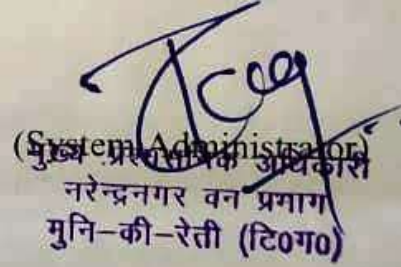 (System Administrator)
मुख्य प्रशासनिक अधिकारी
नरेन्द्रनगर वन प्रभाग
मुनि-की-रेती (टि0ग0)